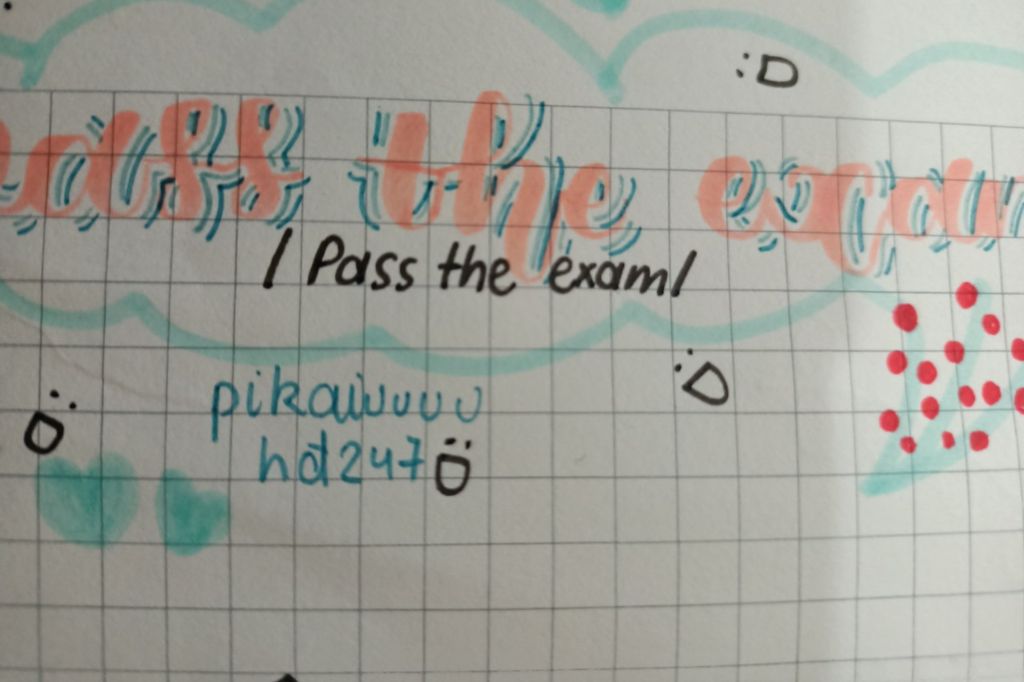 :D
pass the exam
/Pass the exam/
:D
pikaiuuuu
hđ247 :D